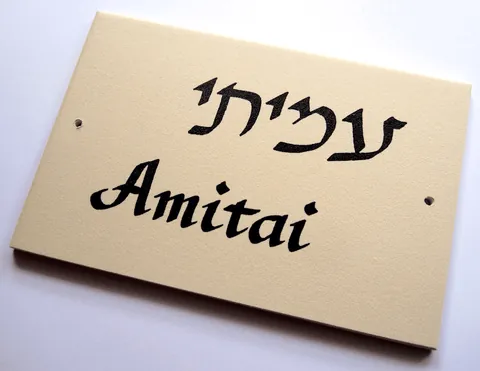 עמיתי
Amitai